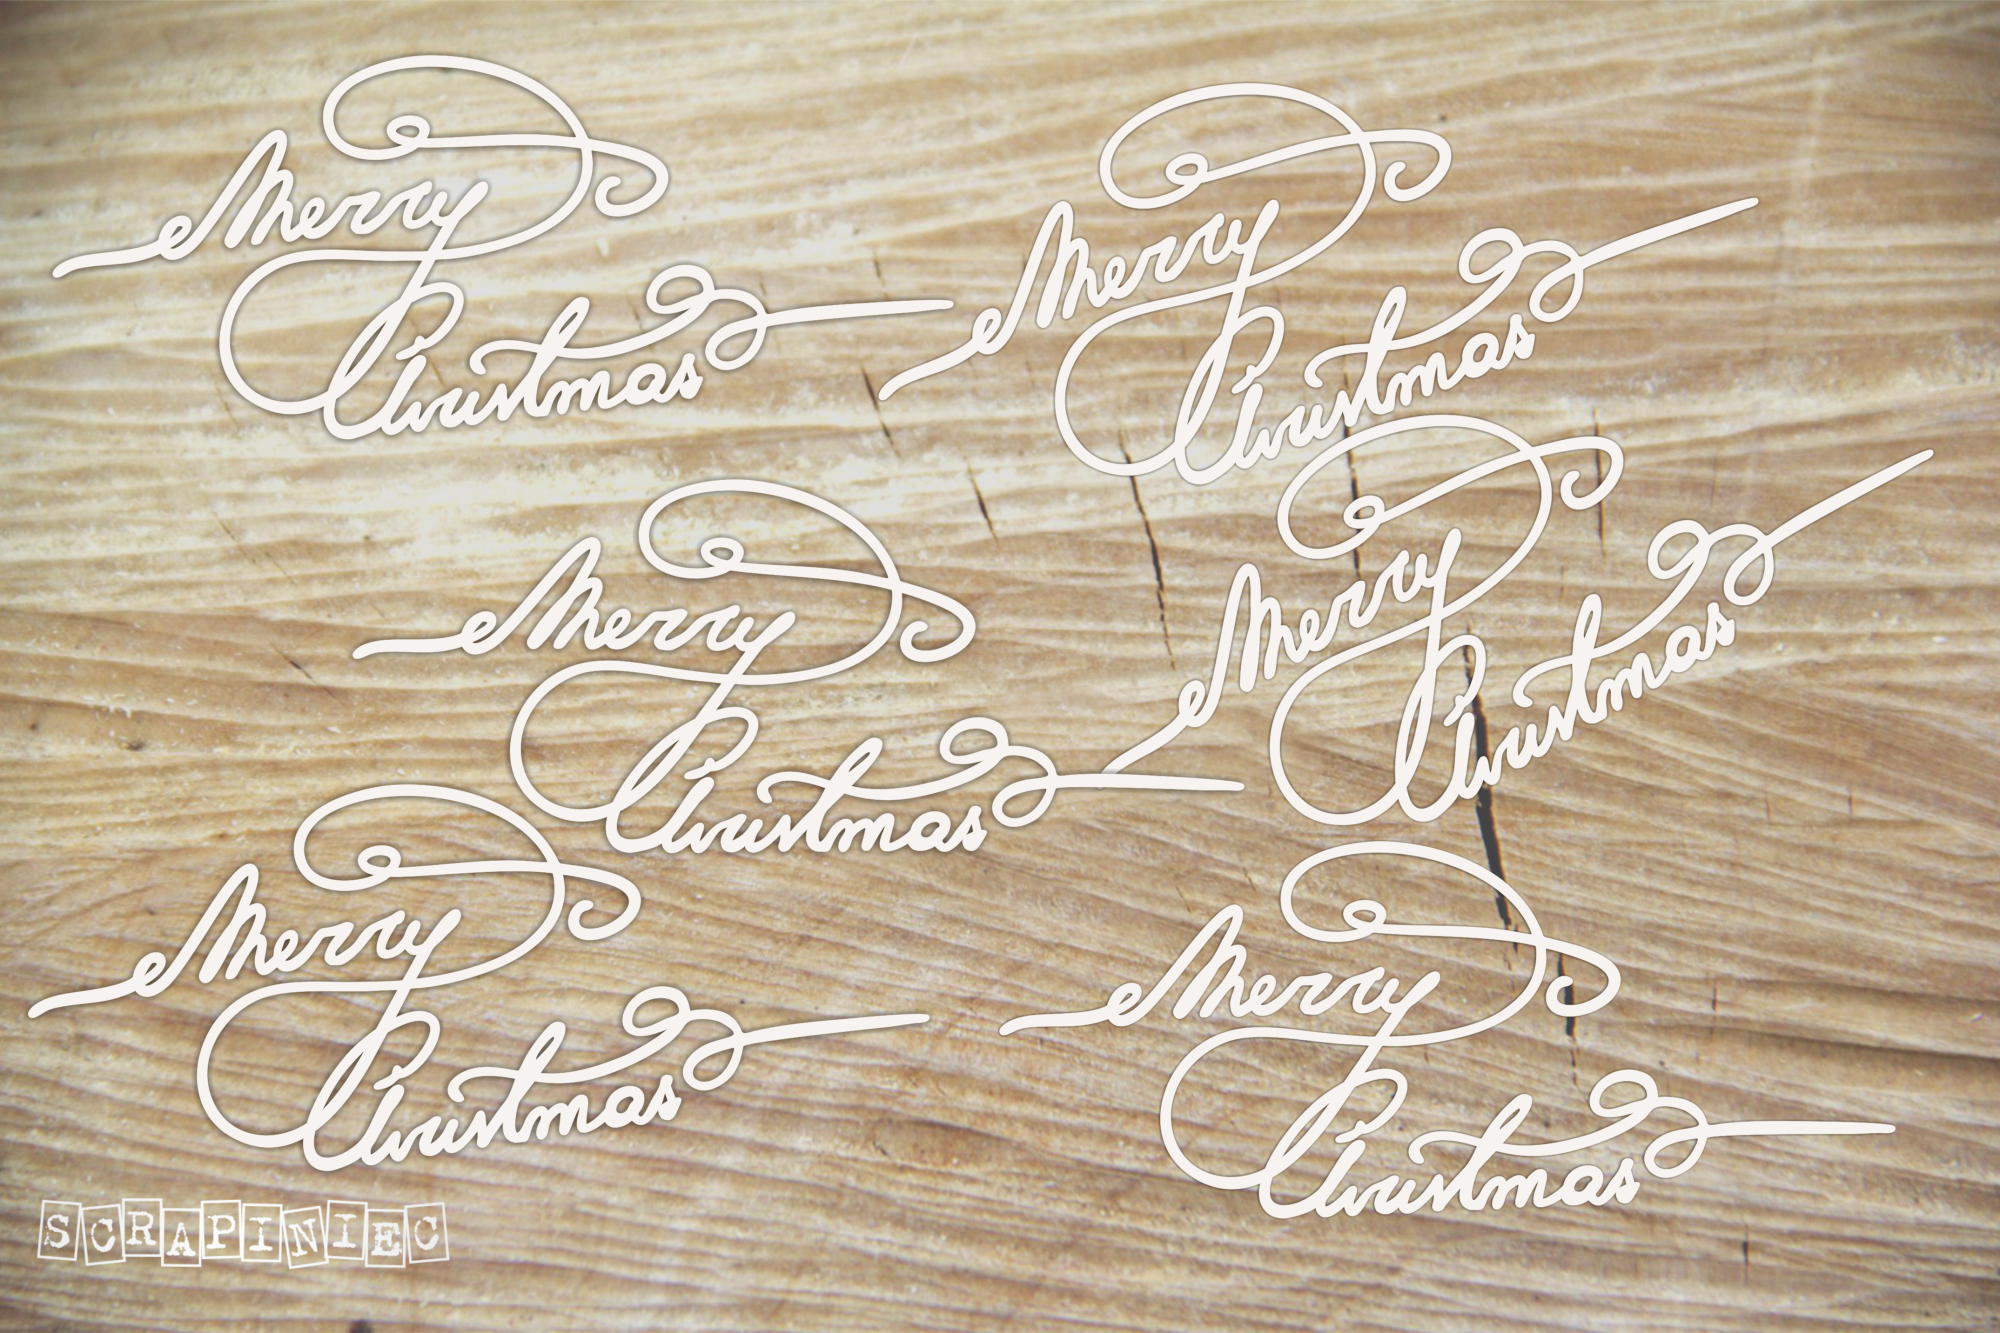 Merry
Christmas
Merry
Christmas
Merry
Christmas
Merry
Christmas
Merry
Christmas
Merry
Christmas
SCRAPINIEC